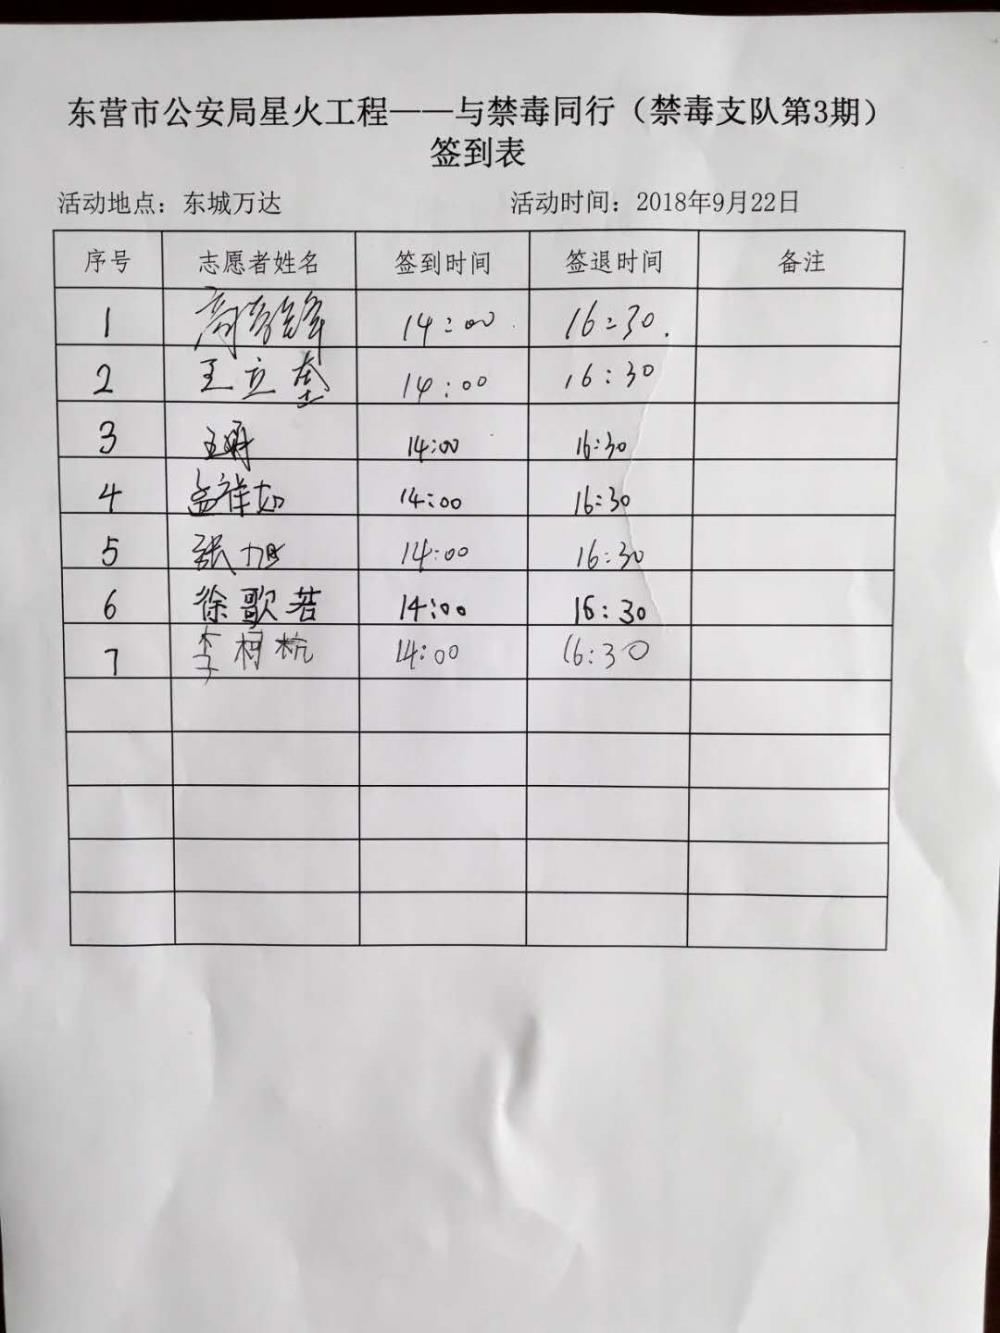 东营市公安局星火工程——与禁毒同行（禁毒支队第3期）
签到表
活动地点：东城万达 活动时间：2018年9月22日
序号 志愿者姓名 签到时间 签退时间 备注
1 14:00 16:30
2 王立垄 14:00 16:30
3 14:00 16:30
4 孟祥如 14:00 16:30
5 张旭 14:00 16:30
6 徐歌若 14:00 16:30
7 李柯杭 14:00 16:30